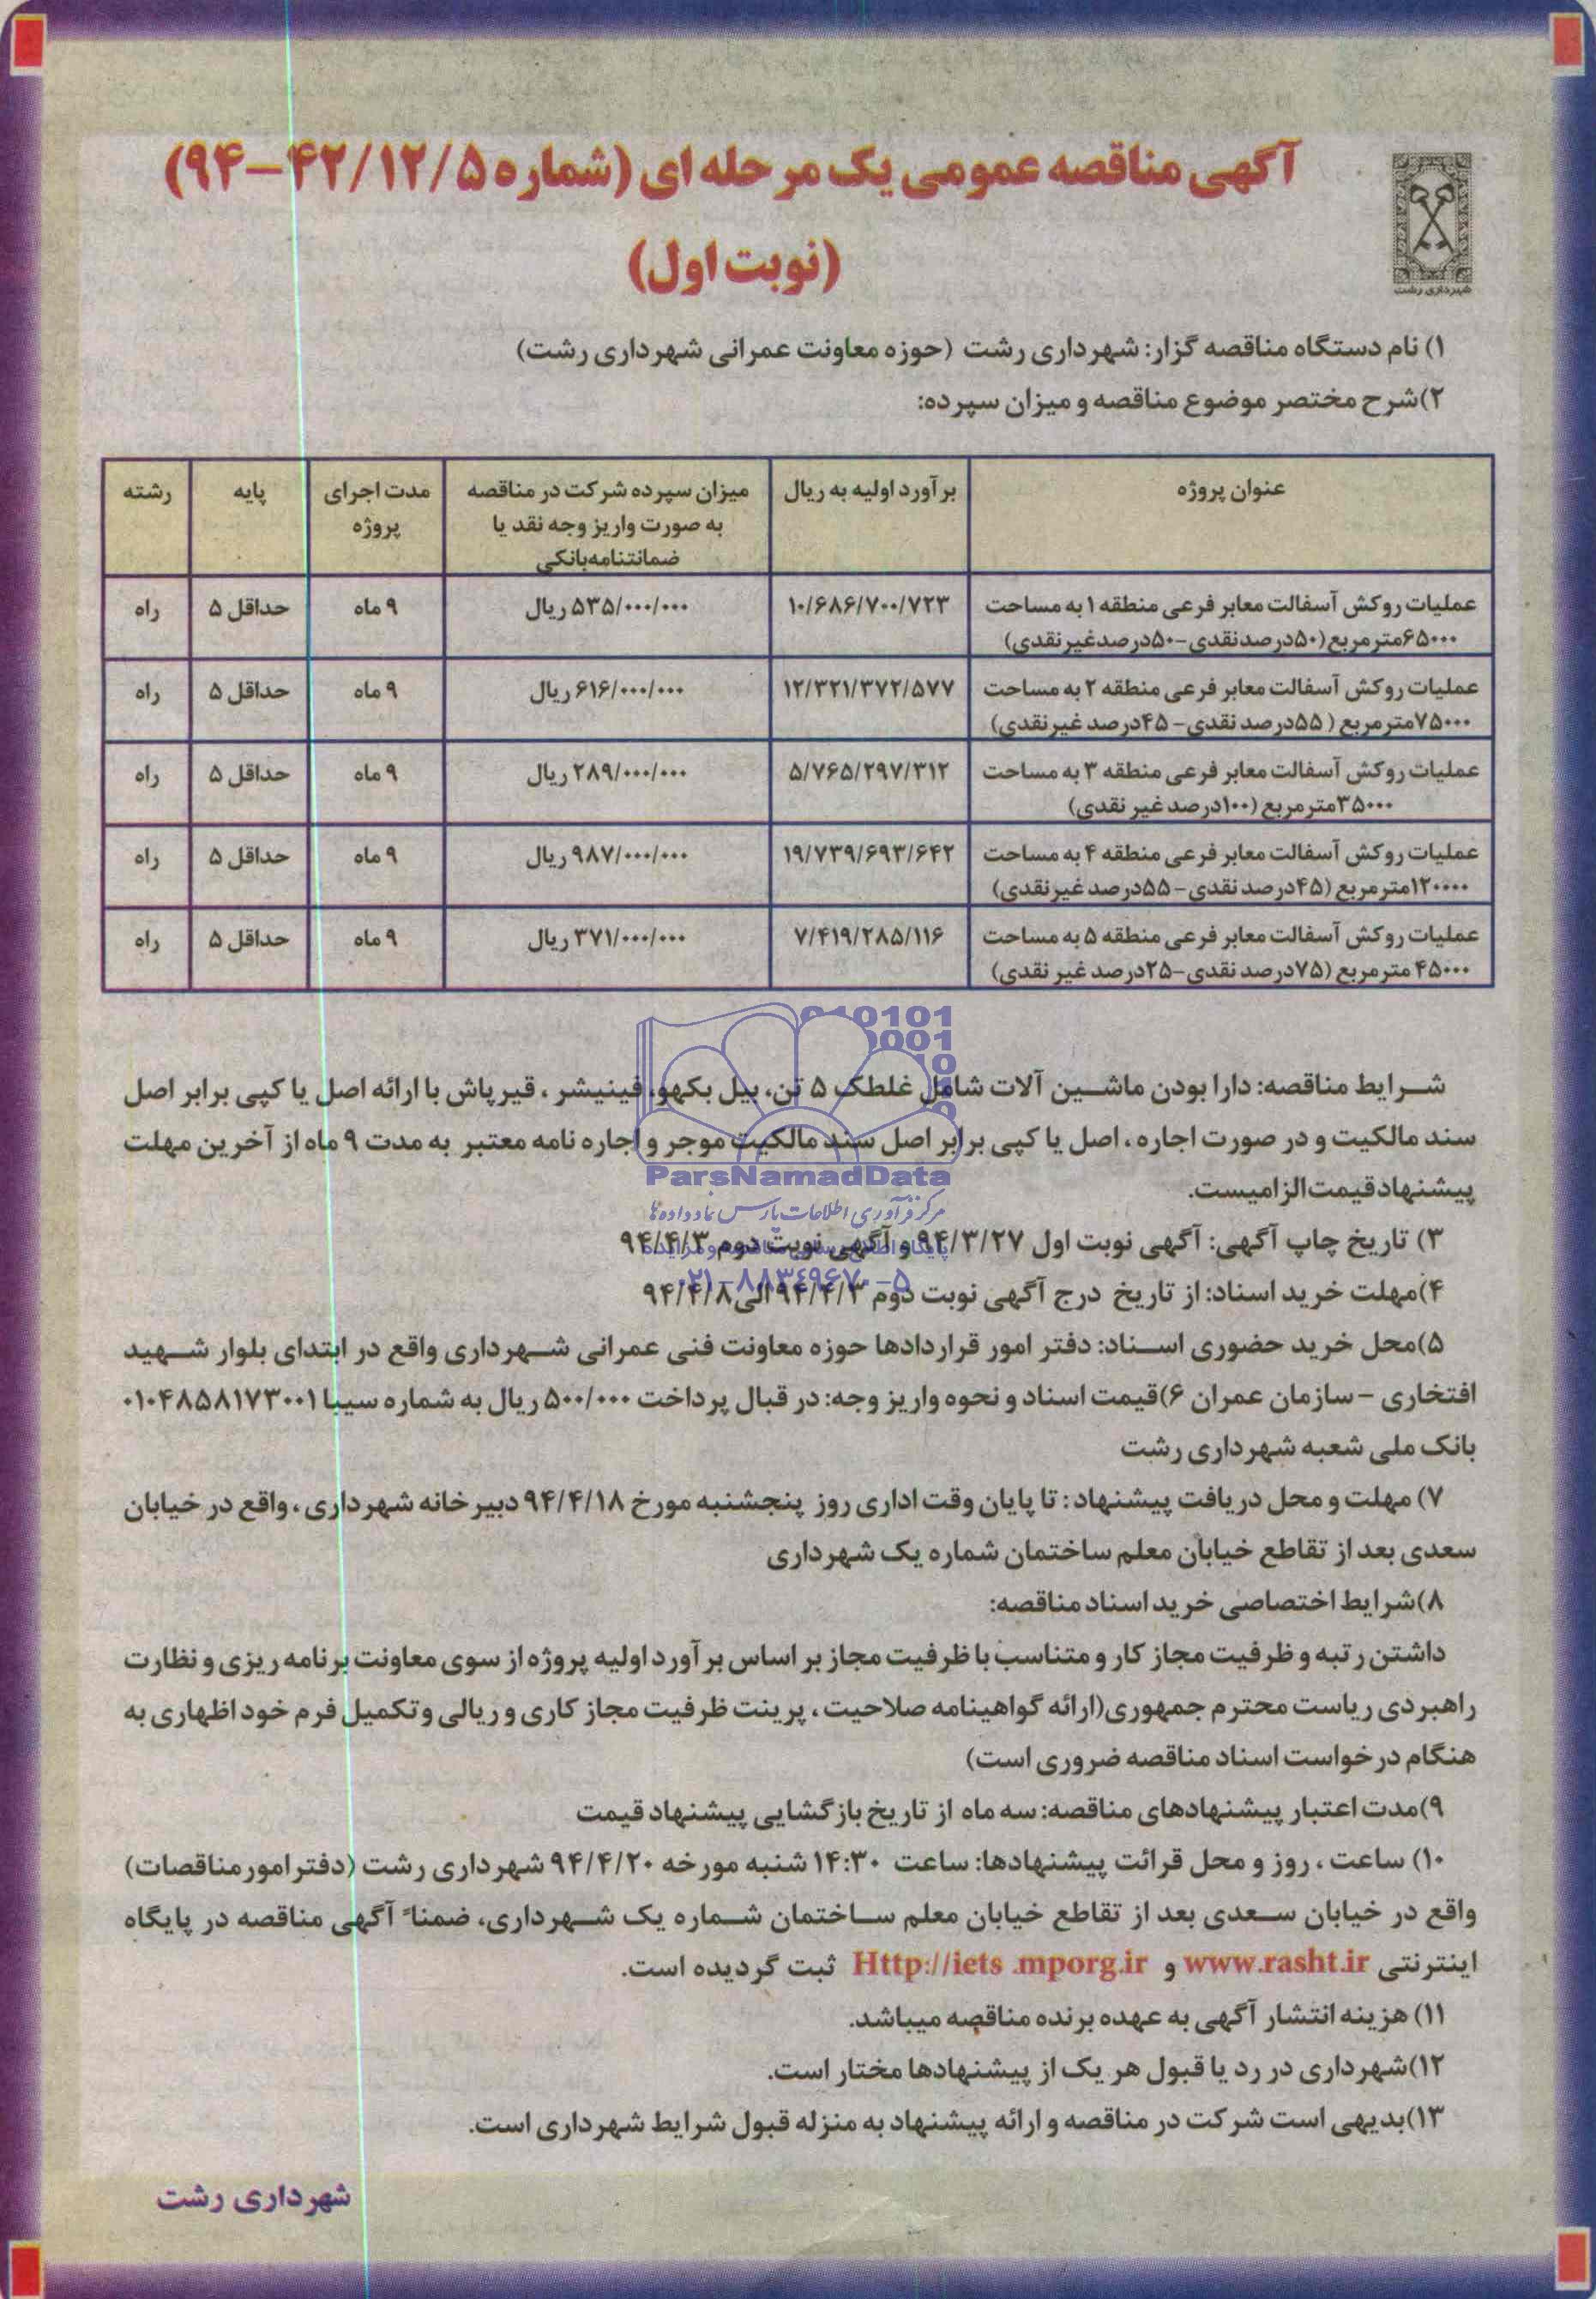 آگهی مناقصه عمومی یک مرحله ای (شماره ۹۴-۴۲/۱۲/۵)
(نوبت اول)
شهرداری رشت
۱) نام دستگاه مناقصه گزار: شهرداری رشت (حوزه معاونت عمرانی شهرداری رشت)
۲)شرح مختصر موضوع مناقصه و میزان سپرده:
عنوان پروژه | برآورد اولیه به ریال | میزان سپرده شرکت در مناقصه به صورت واریز وجه نقد یا ضمانتنامه بانکی | مدت اجرای پروژه | پایه | رشته
عملیات روکش آسفالت معابر فرعی منطقه ۱ به مساحت | ۱۰/۶۸۶/۷۰۰/۷۲۳ | ۵۳۵/۰۰۰/۰۰۰ ریال | ۹ ماه | حداقل ۵ | راه
۶۵۰۰۰مترمربع(۵۰درصدنقدی-۵۰درصدغیرنقدی)
عملیات روکش آسفالت معابر فرعی منطقه ۲ به مساحت | ۱۲/۳۲۱/۳۷۲/۵۷۷ | ۶۱۶/۰۰۰/۰۰۰ ریال | ۹ ماه | حداقل ۵ | راه
۷۵۰۰۰مترمربع (۵۵درصد نقدی-۴۵درصد غیرنقدی)
عملیات روکش آسفالت معابر فرعی منطقه ۳ به مساحت | ۵/۷۶۵/۲۹۷/۳۱۲ | ۲۸۹/۰۰۰/۰۰۰ ریال | ۹ ماه | حداقل ۵ | راه
۳۵۰۰۰مترمربع (۱۰۰درصد غیر نقدی)
عملیات روکش آسفالت معابر فرعی منطقه ۴ به مساحت | ۱۹/۷۳۹/۶۹۳/۶۴۲ | ۹۸۷/۰۰۰/۰۰۰ ریال | ۹ ماه | حداقل ۵ | راه
۱۲۰۰۰۰مترمربع (۴۵درصد نقدی-۵۵درصد غیرنقدی)
عملیات روکش آسفالت معابر فرعی منطقه ۵ به مساحت | ۷/۴۱۹/۲۸۵/۱۱۶ | ۳۷۱/۰۰۰/۰۰۰ ریال | ۹ ماه | حداقل ۵ | راه
۴۵۰۰۰ مترمربع (۷۵درصد نقدی-۲۵درصد غیر نقدی)
شرایط مناقصه: دارا بودن ماشین آلات شامل غلطک ۵ تن، بیل بکهو، فینیشر ، قیرپاش با ارائه اصل یا کپی برابر اصل
سند مالکیت و در صورت اجاره ، اصل یا کپی برابر اصل سند مالکیت موجر و اجاره نامه معتبر به مدت ۹ ماه از آخرین مهلت
پیشنهاد قیمت الزامیست.
ParsNamadData
مرکز فرآوری اطلاعات پارس نماد داده ها
۳) تاریخ چاپ آگهی: آگهی نوبت اول ۹۴/۳/۲۷ و آگهی نوبت دوم ۹۴/۴/۳
۰۲۱-۸۸۳۴۹۶۷۰-۵
۴)مهلت خرید اسناد: از تاریخ درج آگهی نوبت دوم ۹۴/۴/۳ الی ۹۴/۴/۸
۵)محل خرید حضوری اسناد: دفتر امور قراردادها حوزه معاونت فنی عمرانی شهرداری واقع در ابتدای بلوار شهید
افتخاری - سازمان عمران ۶)قیمت اسناد و نحوه واریز وجه: در قبال پرداخت ۵۰۰/۰۰۰ ریال به شماره سیبا ۰۱۰۴۸۵۸۱۷۳۰۰۱
بانک ملی شعبه شهرداری رشت
۷) مهلت و محل دریافت پیشنهاد : تا پایان وقت اداری روز پنجشنبه مورخ ۹۴/۴/۱۸ دبیرخانه شهرداری ، واقع در خیابان
سعدی بعد از تقاطع خیابان معلم ساختمان شماره یک شهرداری
۸)شرایط اختصاصی خرید اسناد مناقصه:
داشتن رتبه و ظرفیت مجاز کار و متناسب با ظرفیت مجاز بر اساس برآورد اولیه پروژه از سوی معاونت برنامه ریزی و نظارت
راهبردی ریاست محترم جمهوری(ارائه گواهینامه صلاحیت ، پرینت ظرفیت مجاز کاری و ریالی و تکمیل فرم خود اظهاری به
هنگام درخواست اسناد مناقصه ضروری است)
۹)مدت اعتبار پیشنهادهای مناقصه: سه ماه از تاریخ بازگشایی پیشنهاد قیمت
۱۰) ساعت ، روز و محل قرائت پیشنهادها: ساعت ۱۴:۳۰ شنبه مورخه ۹۴/۴/۲۰ شهرداری رشت (دفتر امور مناقصات)
واقع در خیابان سعدی بعد از تقاطع خیابان معلم ساختمان شماره یک شهرداری، ضمناً آگهی مناقصه در پایگاه
اینترنتی www.rasht.ir و Http://iets .mporg.ir ثبت گردیده است.
۱۱) هزینه انتشار آگهی به عهده برنده مناقصه میباشد.
۱۲)شهرداری در رد یا قبول هر یک از پیشنهادها مختار است.
۱۳)بدیهی است شرکت در مناقصه و ارائه پیشنهاد به منزله قبول شرایط شهرداری است.
شهرداری رشت